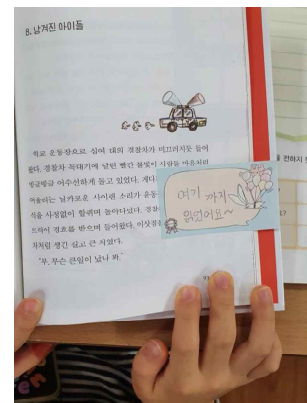 8. 남겨진 아이들
학교 운동장으로 십여 대의 경찰차가 미끄러지듯 들어
왔다. 경찰차 꼭대기에 달린 빨간 불빛이 사람들 마음처럼
빙글빙글 어수선하게 돌고 있었다. 게다
어울리는 날카로운 사이렌 소리가 운동
식을 사정없이 할퀴며 돌아다녔다. 경찰
드차이 경호를 받으며 들어왔다. 이삿짐
차처럼 생긴 길고 큰 차였다.
"무, 무슨 큰일이 났나 봐."
여기 까지
읽었어요~
전하지